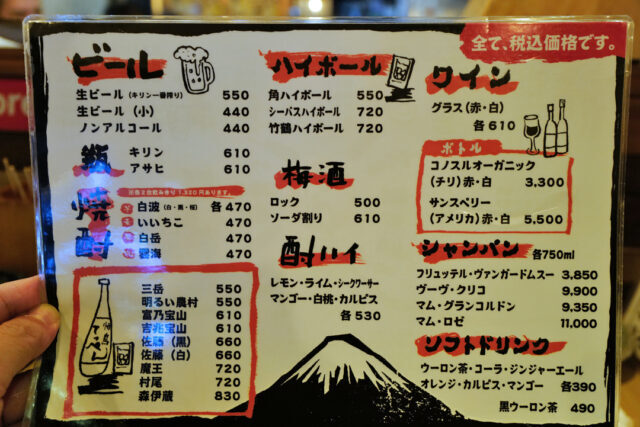 全て、税込価格です。
ビール
生ビール (キリン一番搾り) 550
生ビール (小) 440
ノンアルコール 440
瓶
キリン 610
アサヒ 610
焼酎
白波 (白・黒・桜) 各470
いいちこ 470
白岳 470
碧海 470
三岳 550
明るい農村 550
富乃宝山 610
吉兆宝山 610
佐藤 (黒) 660
佐藤 (白) 660
魔王 720
村尾 720
森伊蔵 830
ハイボール
角ハイボール 550
シーバスハイボール 720
竹鶴ハイボール 720
梅酒
ロック 500
ソーダ割り 610
酎ハイ
レモン・ライム・シークワーサー
マンゴー・白桃・カルピス
各530
ワイン
グラス (赤・白)
各610
ボトル
コノスルオーガニック
(チリ) 赤・白 3,300
サンスベリー
(アメリカ) 赤・白 5,500
シャンパン 各750ml
フリュッテル・ヴァンガードムスー 3,850
ヴーヴ・クリコ 9,900
マム・グランコルドン 9,350
マム・ロゼ 11,000
ソフトドリンク
ウーロン茶・コーラ・ジンジャーエール
オレンジ・カルピス・マンゴー 各390
黒ウーロン茶 490